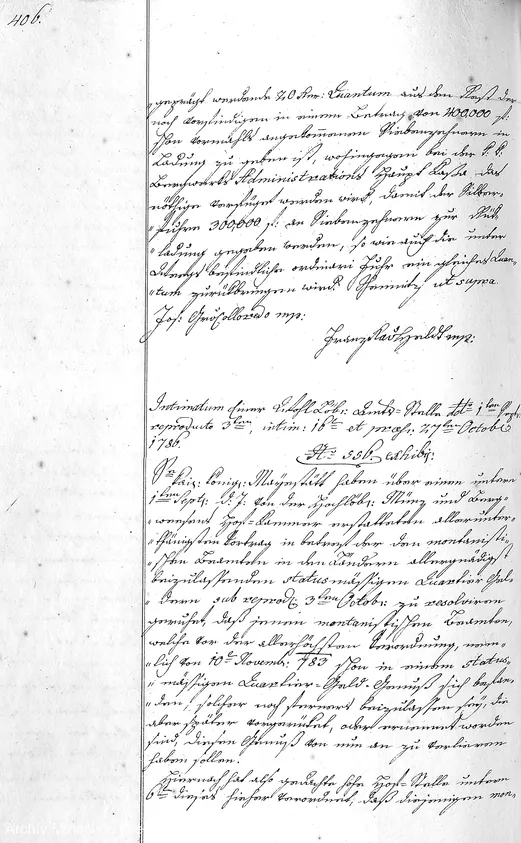 406.
geprägt werdende 20 Kr: Quantum aus dem Rest der
noch vorständigen in einem Betrag von 400,000 f:
schon vormahls angekommenen Siebenzehnern in
Ladung zu geben ist, wohingegen bei der k. k.
Bergwerks Administrations Haupt Kassa das
nöthige verfüget werden wird, damit der Silber-
fuhre 300,000 f: an Siebenzehnern zur Rük-
ladung gegeben werden, so wie auch die unter
befindliche ordinari Fuhr ein gleiches Quan-
tum zurükbringen wird. Schemnitz ut supra.
Jos: Gr: Colloredo mp:
Franz mp:
Intimatum Einer Wohl Löb: Amts-Stelle ddto 1ten Sept:
reproducto 3ten, intim: 16t et praes: 27ten Octobr
1786.
No. 556. exhib:
Se kais: König: Mayestätt haben über einen unterm
1ten Septr: d: J: von der Hochlöb: Münz und Berg-
wesens Hof-Kammer erstatteten allerunter-
thänigsten Vortrag in betref der den montanisti-
schen Beamten in den Ländern allergnädigst
beizulassenden statusmässigen Quartier Gel-
dern sub reprod: 3ten Octobr: zu resolviren
geruhet, daß jenen montanistischen Beamten,
welche vor der allerhöchsten Verordnung, nem-
lich von 10t Novembr: 783 schon in einem status-
mässigen Quartier-Geld-Genuß sich befan-
den, solcher noch ferners beizulassen sey, die
aber später vorgerüket, oder ernennet worden
sind, diesen Genuß von nun an zu verlieren
haben sollen.
Hiernach hat also gedachte hohe Hof-Stelle unterm
6ten dieses hieher verordnet, daß diejenigen mon-